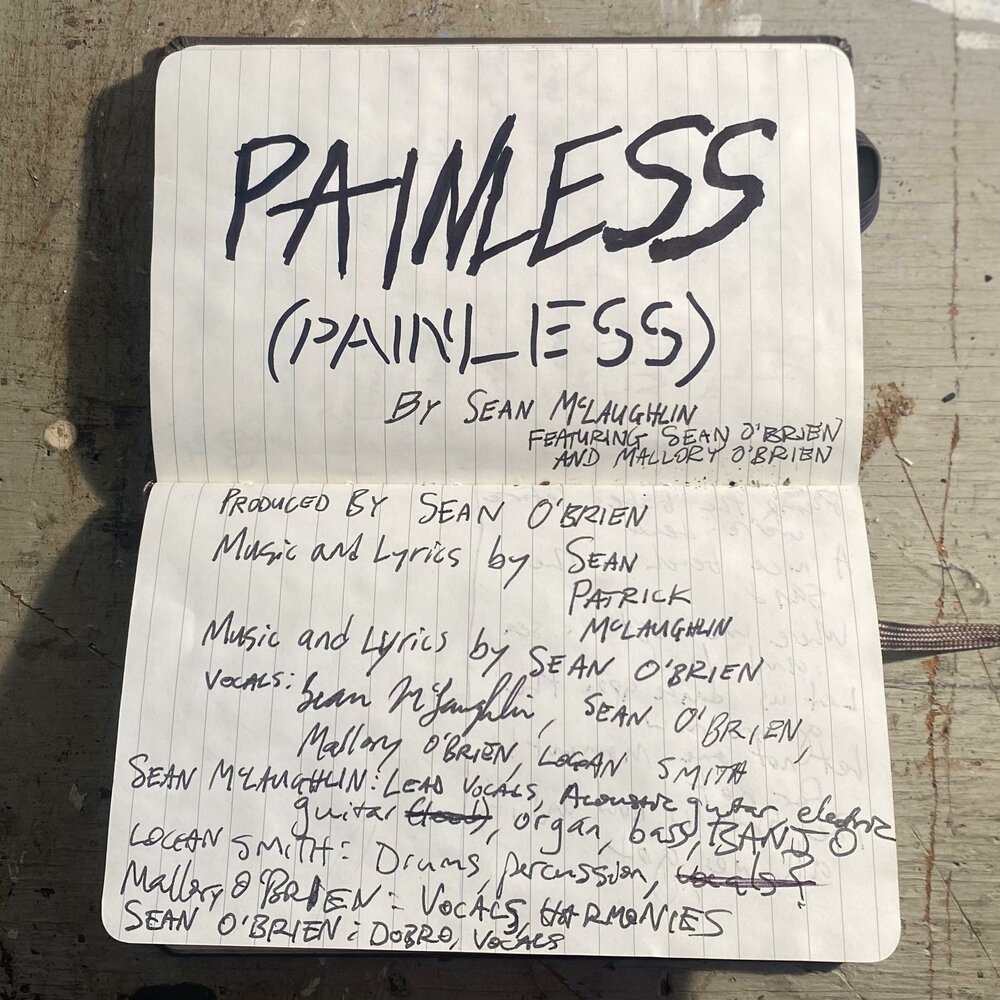 PAINLESS
(PAINLESS)
BY SEAN McLAUGHLIN
FEATURING SEAN O'BRIEN
AND MALLORY O'BRIEN
PRODUCED BY SEAN O'BRIEN
Music and Lyrics by SEAN
PATRICK
McLAUGHLIN
Music and Lyrics by SEAN O'BRIEN
VOCALS: Sean McLaughlin, SEAN O'BRIEN,
Mallory O'BRIEN, LOGAN SMITH
SEAN McLAUGHLIN: LEAD VOCALS, Acoustic guitar, electric
guitar, organ, bass, BANJO
LOGAN SMITH: Drums, percussion, vocals?
Mallory O'BRIEN: VOCALS, HARMONIES
SEAN O'BRIEN: DOBRO, VOCALS